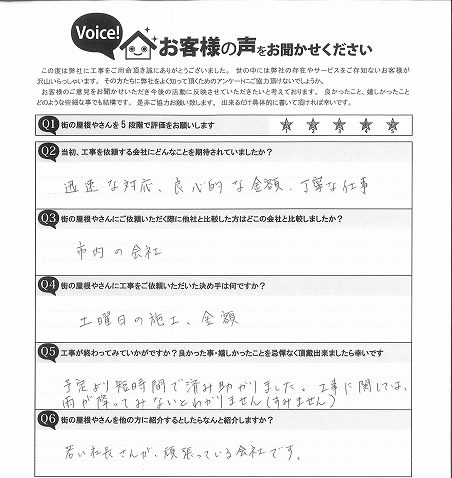 Voice!
お客様の声をお聞かせください
この度は弊社に工事をご用命頂き誠にありがとうございました。世の中には弊社の存在やサービスをご存知ないお客様が
沢山いらっしゃいます。その方たちに弊社をよく知って頂くためのアンケートにご協力頂けないでしょうか。
お客様のご意見をお聞かせいただき今後の活動に反映させていただきたいと考えております。良かったこと、嬉しかったこと
どのような些細な事でも結構です。是非ご協力お願い致します。出来るだけ具体的に書いて頂ければ幸いです。
Q1 街の屋根やさんを5段階で評価をお願いします
Q2 当初、工事を依頼する会社にどんなことを期待されていましたか?
迅速な対応、良心的な金額、丁寧な仕事
Q3 街の屋根やさんにご依頼いただく際に他社と比較した方はどこの会社と比較しましたか?
市内の会社
Q4 街の屋根やさんに工事をご依頼いただいた決め手は何ですか?
土曜日の施工、金額
Q5 工事が終わってみていかがですか?良かった事・嬉しかったことを忌憚なく頂戴出来ましたら幸いです
予定より短時間で済み助かりました。工事に関しては、
雨が降ってみないとわかりません(すみません)
Q6 街の屋根やさんを他の方に紹介するとしたらなんと紹介しますか?
若い社長さんが、頑張っている会社です。